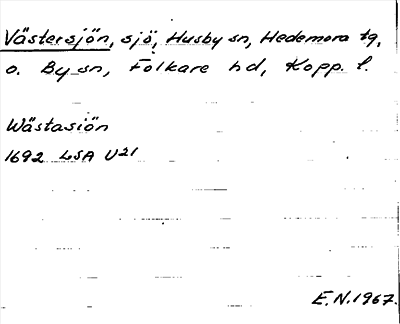 Västersjön, sjö, Husby sn, Hedemora tg,
o. By sn, Folkare hd, Kopp. l.
Wästasiön
1692 LSA U21
E.N. 1967.